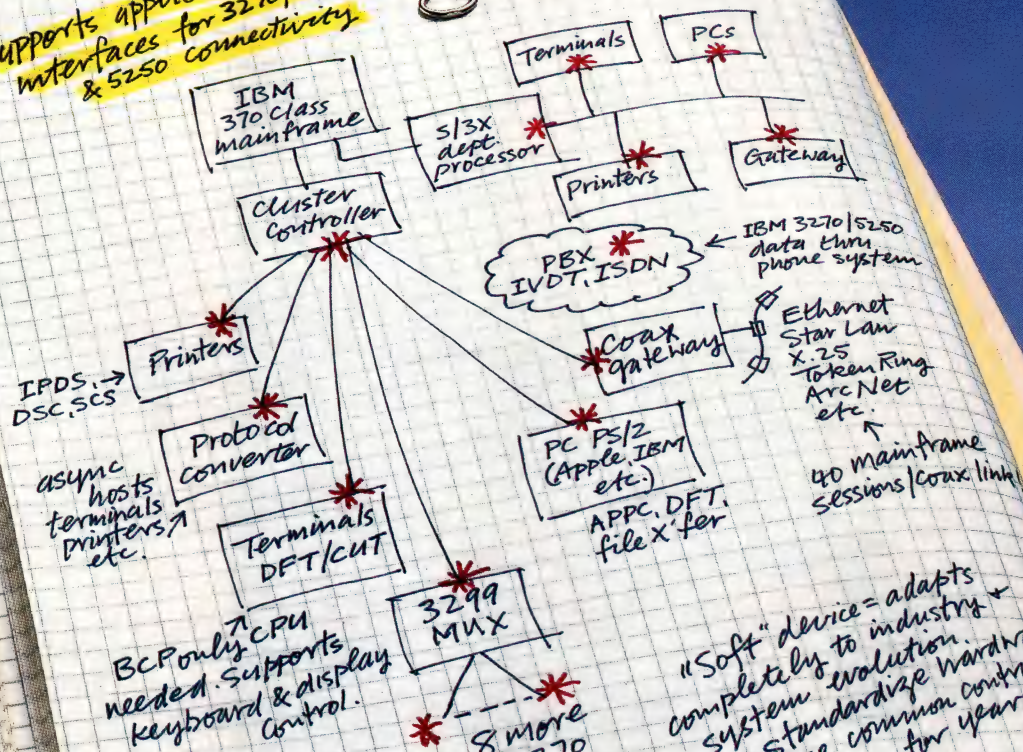 supports
interfaces for
& 5250 connectivity
IBM
370 class
mainframe
S/3X
dept.
processor
Terminals
PCs
Printers
Gateway
Cluster
Controller
PBX
IVDT, ISDN
IBM 3270/5250
data thru
phone system
Printers
IPDS,
DSC, SCS
Coax
gateway
Ethernet
Star Lan
X.25
Token Ring
ArcNet
etc.
40 mainframe
sessions/coax link
Protocol
Converter
async
hosts
terminals
printers
etc.
PC PS/2
(Apple, IBM
etc.)
APPC, DFT,
file X'fer
Terminals
DFT/CUT
BCP only CPU
needed. Supports
keyboard & display
control.
3299
MUX
8 more
"Soft" device = adapts
completely to industry +
system evolution.
Standardize
common
for year